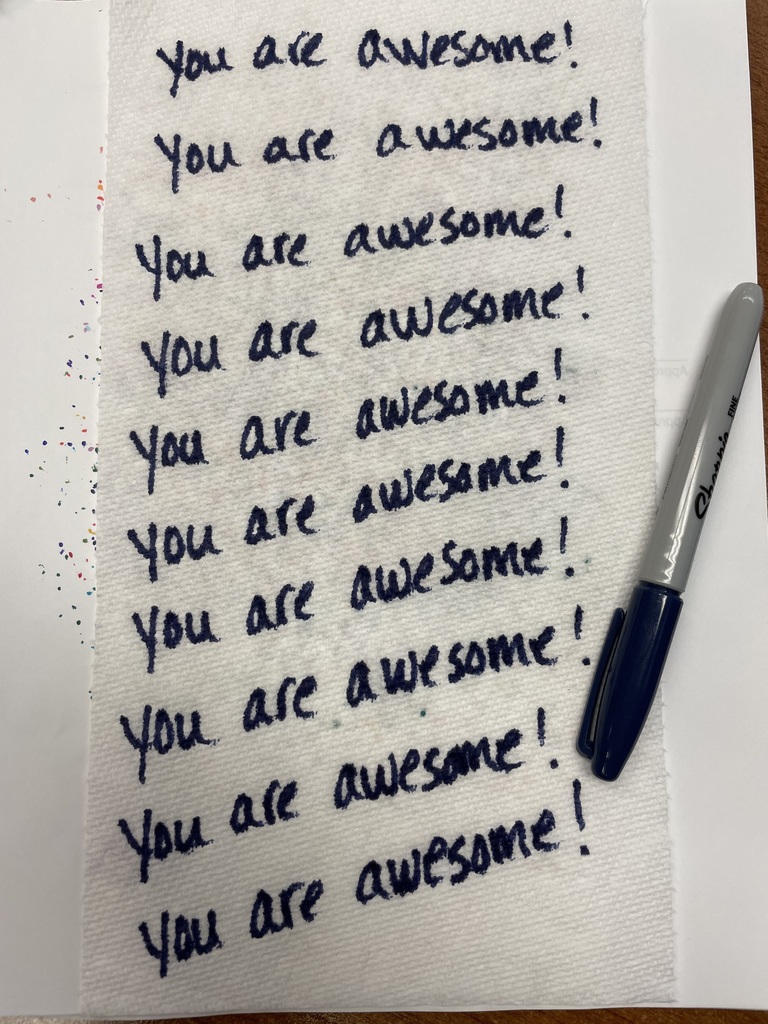 You are awesome!
You are awesome!
You are awesome!
You are awesome!
You are awesome!
You are awesome!
You are awesome!
You are awesome!
You are awesome!
You are awesome!
Sharpie FINE